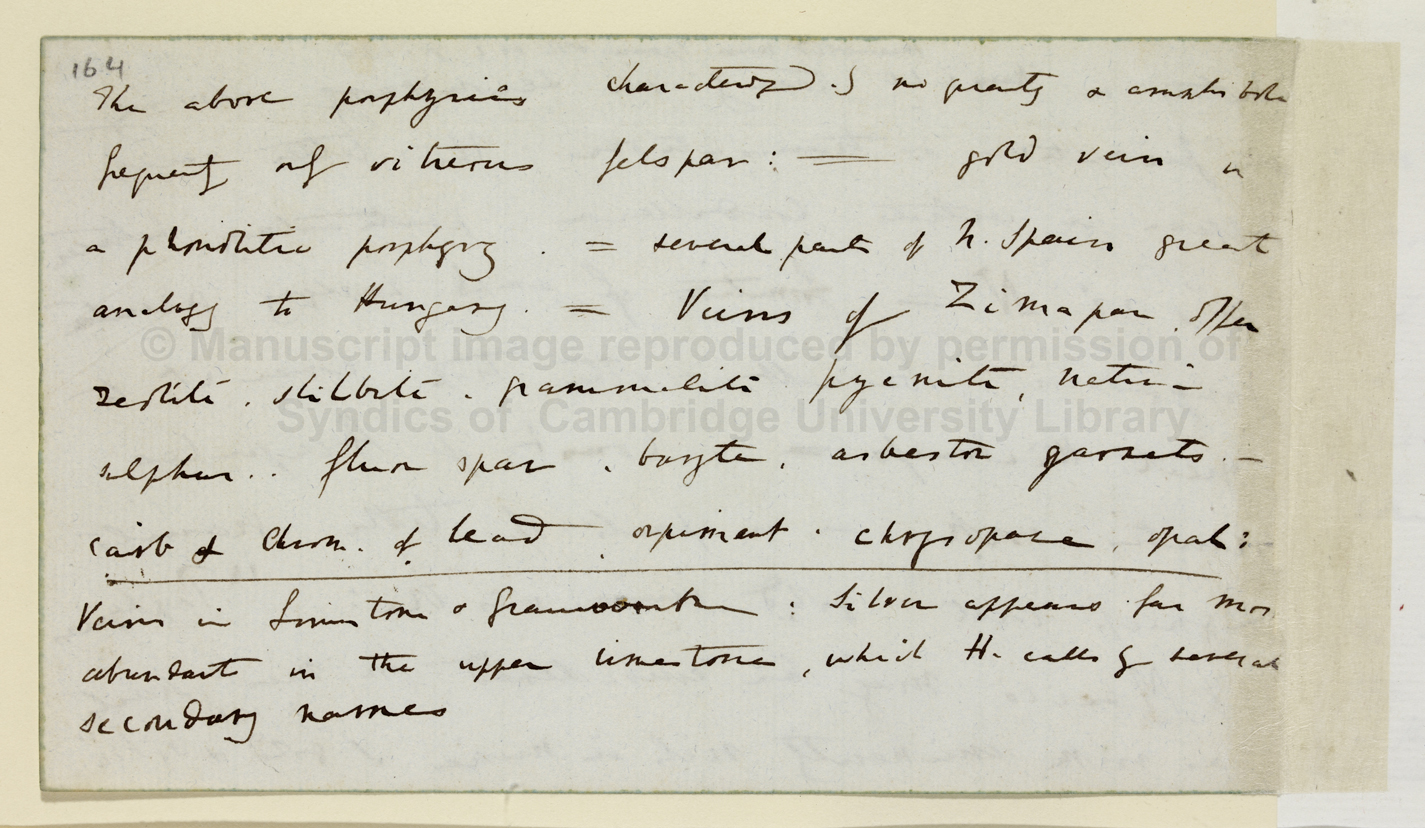 164
The above porphyries characterized by no quartz & amphibole
frequent only vitreous felspar: — gold vein in
a phonolitic porphyry. = several parts of N. Spain great
analogy to Hungary. = Veins of Zimapan offer
zeolite. stilbite. grammalite pycnite, native
sulphur.. fluor spar. baryte. asbestos garnets. —
carb & Chrom. of lead. orpiment. chrysoprase. opal:
Veins in Limestone & Grauwacke: Silver appears far more
abundant in the upper limestone, which H. calls by several
secondary names
© Manuscript image reproduced by permission of
Syndics of Cambridge University Library